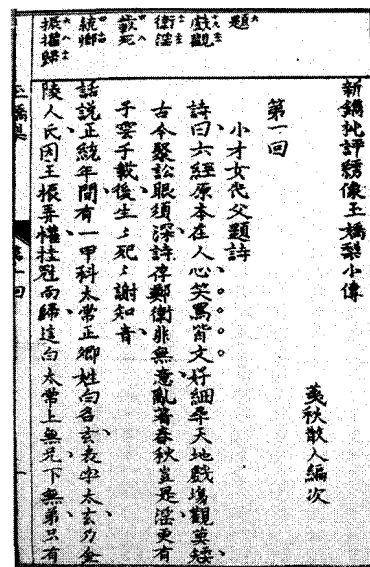 新鐫批評綉像玉嬌梨小傳
荑秋散人編次
第一回
小才女代父題詩
詩曰六經原本在人心笑罵皆文好細尋天地戲塲觀莫矮
古今聚訟眼須深詩存鄭衛非無意亂著春秋豈是淫更有
子雲千載後生〻死〻謝知音
話說正統年間有一甲科太常正卿姓白名玄表字太玄乃金
陵人氏因王振弄權挂冠而歸這白太常上無兄下無弟只有
題
戲觀
衛淫
載死
統卿
振權歸